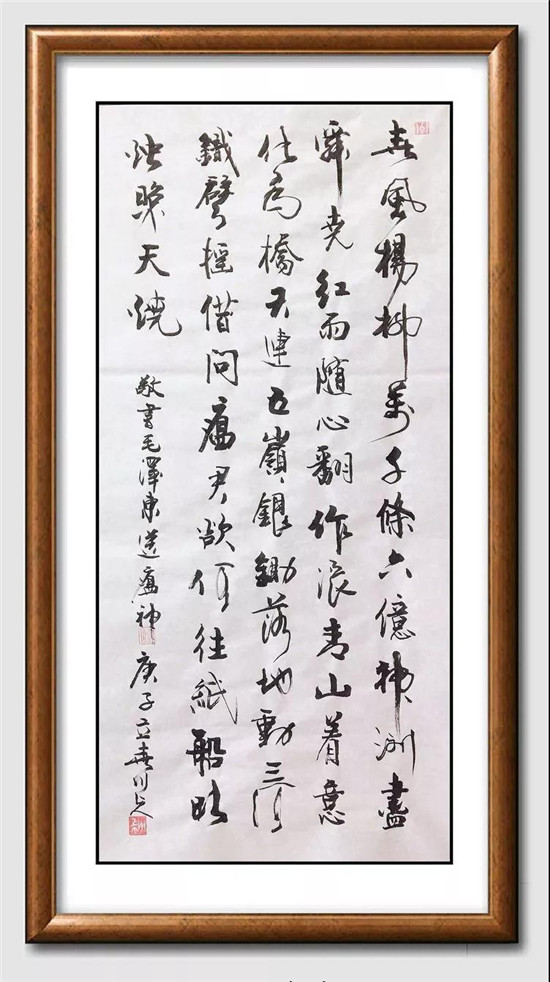 春風楊柳萬千條六億神洲盡
舜堯紅雨隨心翻作浪青山着意
化為橋天連五嶺銀鋤落地動三河
鐵臂摇借問瘟君欲何往紙船明
烛照天燒
敬書毛澤東送瘟神庚子立春川人